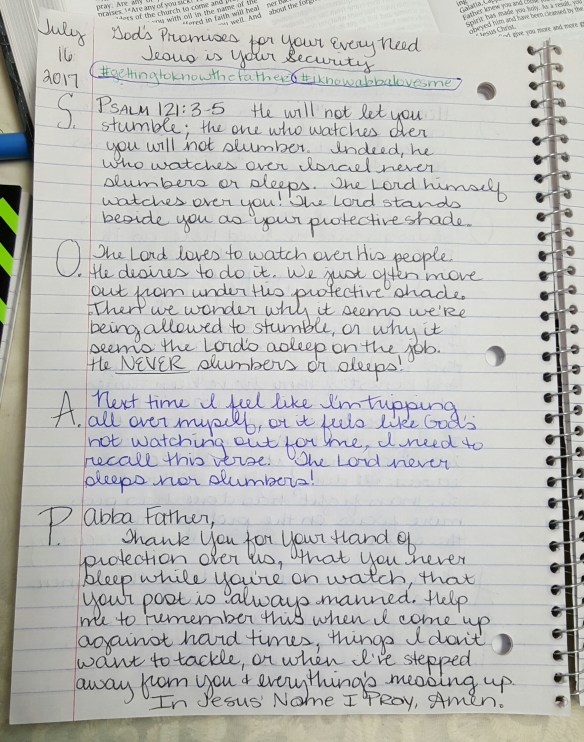 pray. Are any
praises. 14 Are any of you sick?
of the church to come and pray
you with oil in the name of the
offered in faith will heal
well. And
about the
July
16
2017
God's Promises for Your Every Need
Jesus is Your Security
#gettingtoknowthefather #iknowabbalovesme
S. PSALM 121:3-5 He will not let you
stumble; the one who watches over
you will not slumber. Indeed, he
who watches over Israel never
slumbers or sleeps. The Lord himself
watches over you! The Lord stands
beside you as your protective shade.
O. The Lord loves to watch over His people.
He desires to do it. We just often move
out from under His protective shade.
Then we wonder why it seems we're
being allowed to stumble, or why it
seems the Lord's asleep on the job.
He NEVER slumbers or sleeps!
A. Next time I feel like I'm tripping
all over myself, or it feels like God's
not watching out for me, I need to
recall this verse. The Lord never
sleeps nor slumbers!
P. Abba Father,
Thank You for Your Hand of
protection over us, that You never
sleep while You're on watch, that
Your post is always manned. Help
me to remember this when I come up
against hard times, things I don't
want to tackle, or when I've stepped
away from You & everything's messing up.
In Jesus' Name I Pray, Amen.